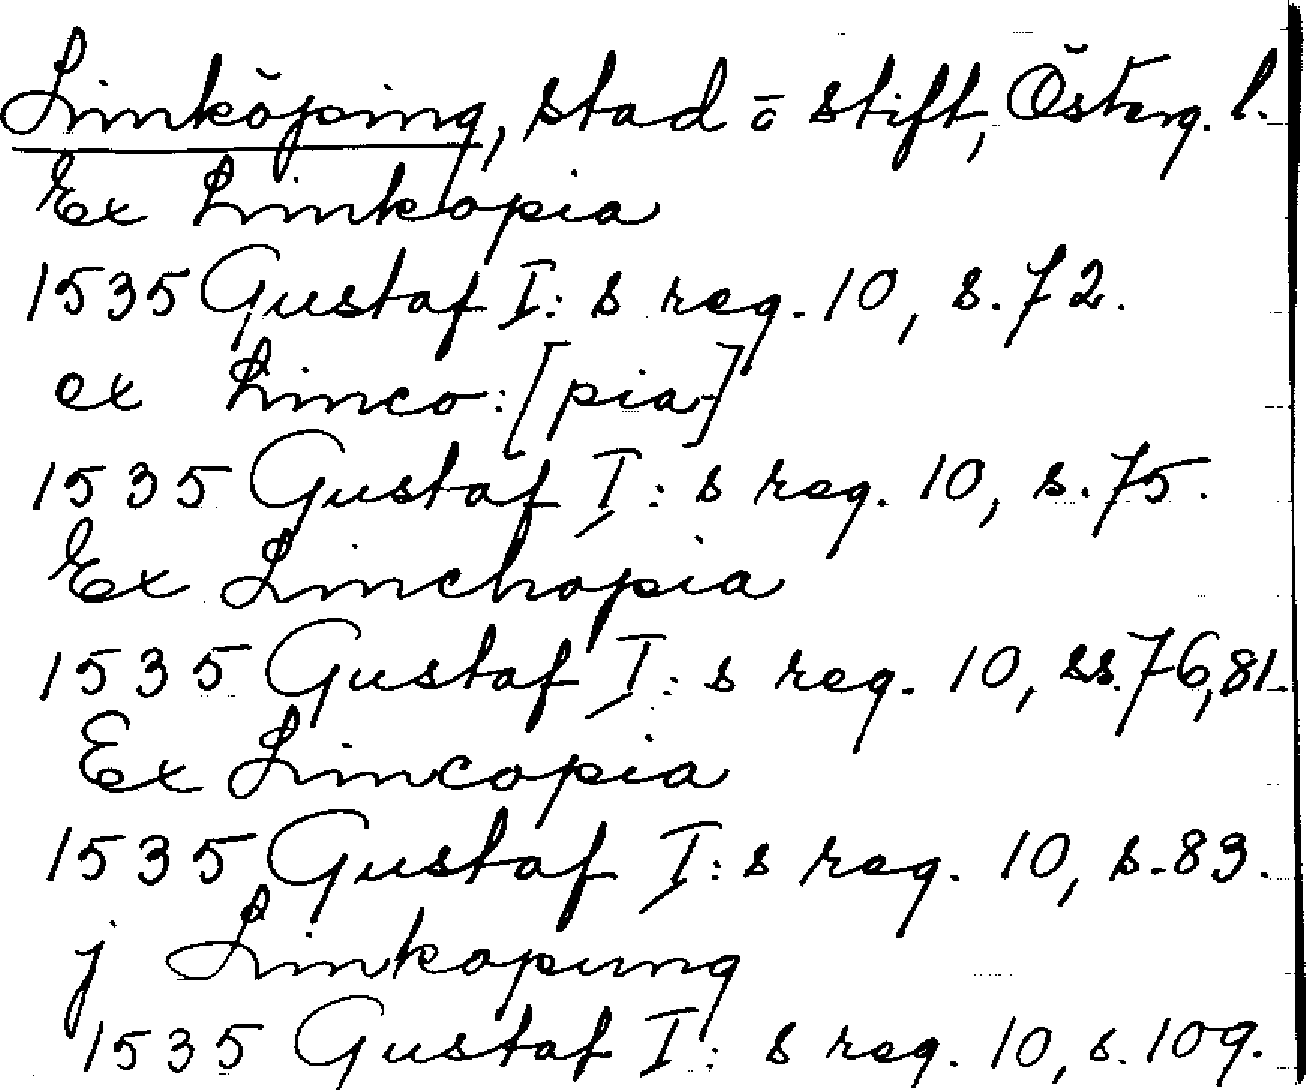 Linköping, stad ō stift, Österg. l.
Ex Linkopia
1535 Gustaf I: s reg. 10, s. 72.
ex Linco: [pia]
1535 Gustaf I: s reg. 10, s. 75.
Ex Linchopia
1535 Gustaf I: s reg. 10, ss. 76, 81.
Ex Lincopia
1535 Gustaf I: s reg. 10, s. 83.
j Linkopung
1535 Gustaf I: s reg. 10, s. 109.